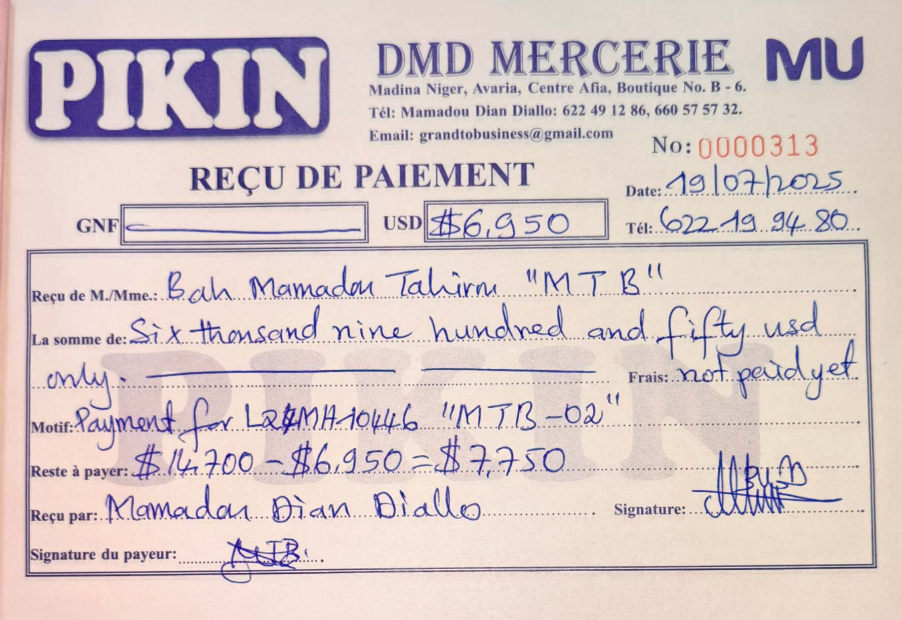 PIKIN
DMD MERCERIE
MU
Madina Niger, Avaria, Centre Afia, Boutique No. B - 6.
Tél: Mamadou Dian Diallo: 622 49 12 86, 660 57 57 32.
Email: grandtobusiness@gmail.com
No: 0000313
REÇU DE PAIEMENT
Date: 19/07/2025
GNF USD $6,950
Tél: 622 19 94 80
Reçu de M./Mme.: Bah Mamadou Tahirou "MTB"
La somme de: Six thousand nine hundred and fifty usd
only. Frais: not paid yet
PIKIN
Motif: Payment for "MTB-02"
Reste à payer: $14,700 - $6,950 = $7,750
Reçu par: Mamadou Dian Diallo Signature:
Signature du payeur: MTB.